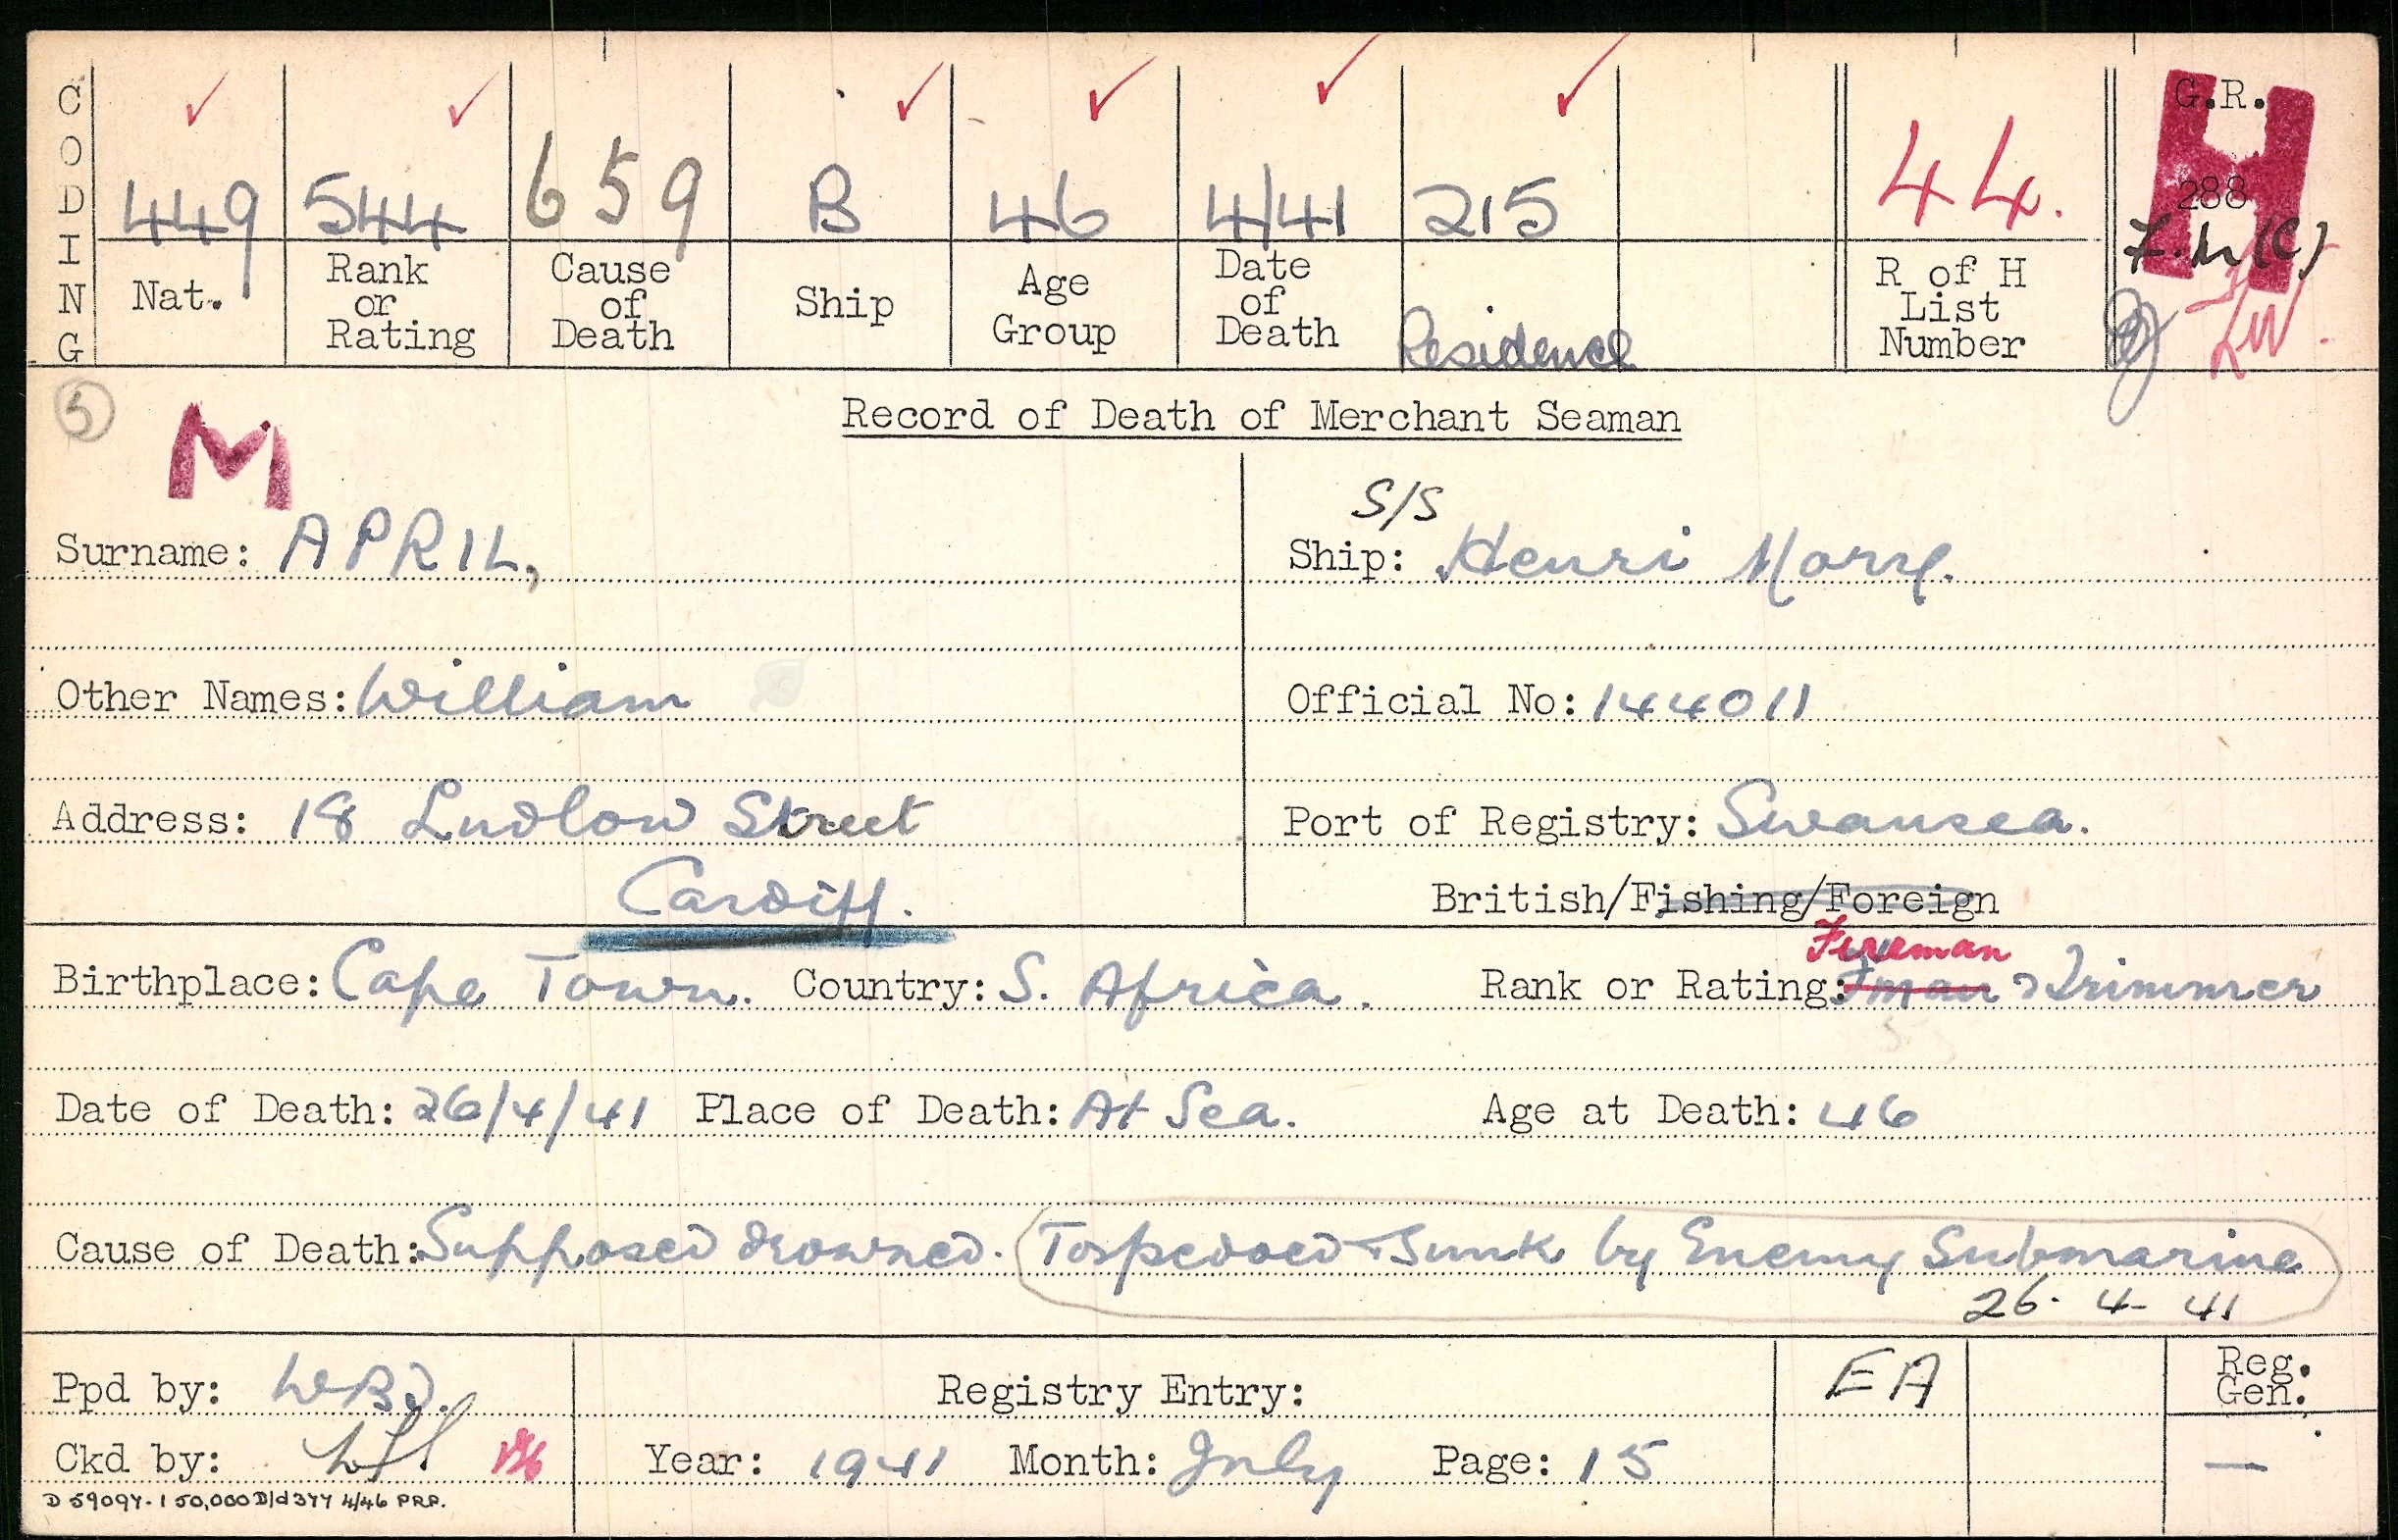 CODING
449 544 659 B 46 4/41 215 44. G.R. 288
Nat. Rank or Rating Cause of Death Ship Age Group Date of Death Residence R of H List Number
5 M Record of Death of Merchant Seaman
Surname: APRIL,
S/S
Ship: Henri Mory.
Other Names: William
Official No: 144011
Address: 18 Ludlow Street
Cardiff.
Port of Registry: Swansea.
British/Fishing/Foreign
Fireman
Birthplace: Cape Town. Country: S. Africa. Rank or Rating: Fman & Trimmer
Date of Death: 26/4/41 Place of Death: At Sea. Age at Death: 46
Cause of Death: Supposed drowned. Torpedoed & Sunk by Enemy Submarine
26. 4- 41
Ppd by: Registry Entry: EA Reg. Gen.
Ckd by: Year: 1941 Month: July Page: 15 —
D 59097-1 50,000 D/d 377 4/46 PRP.